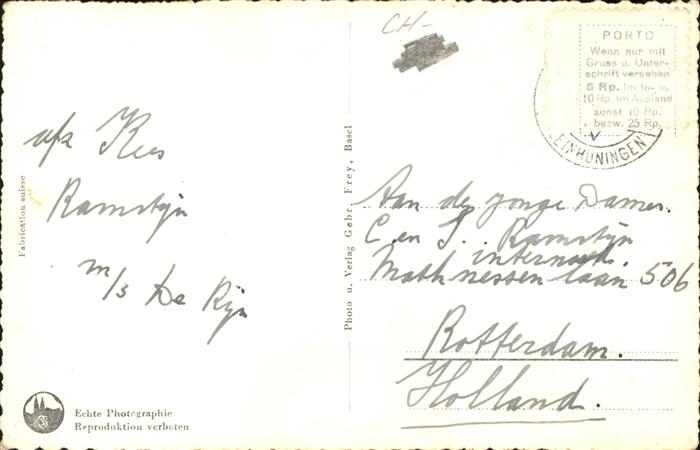 CH-
PORTO
Wenn nur mit
Gruss u. Unter-
schrift versehen
5 Rp. im In- u.
10 Rp. im Ausland
sonst 10 Rp.
bezw. 25 Rp.
EINHÜNINGEN
afz Kees
Ramstijn
m/s De Rijn
Fabrication suisse
Photo u. Verlag Gebr. Frey, Basel
Aan de jonge Dames.
C en S. Ramstijn
internaat.
Mathnesserlaan 506
Rotterdam.
Holland.
Echte Photographie
Reproduktion verboten